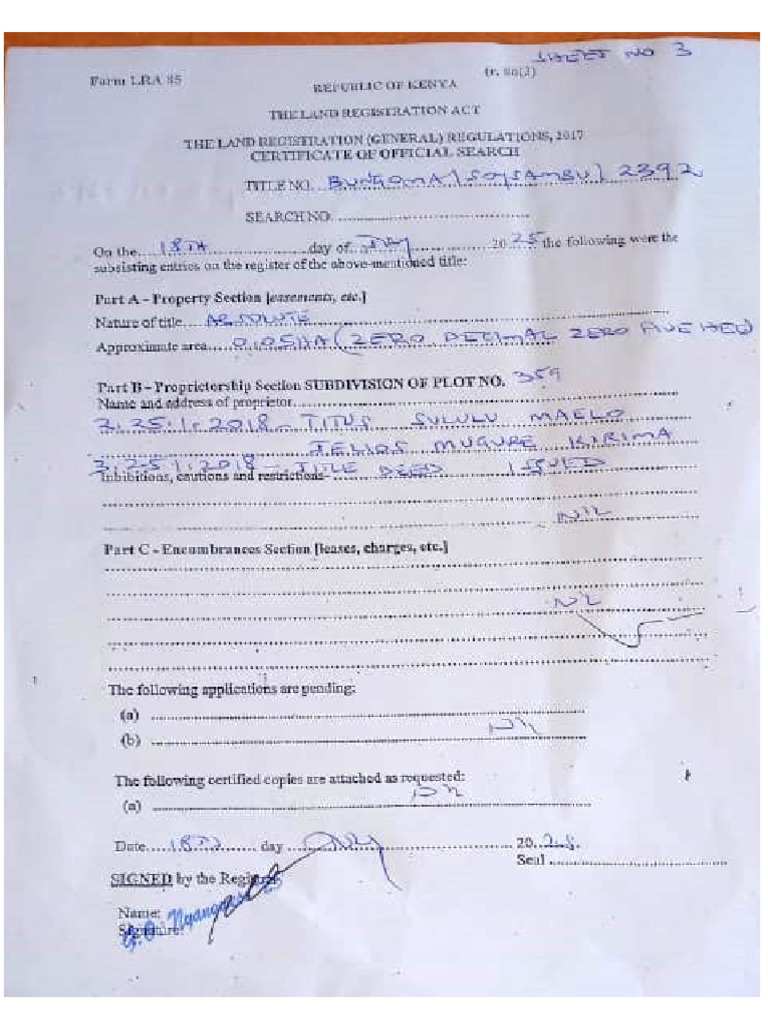 SHEET NO 3
Form LRA 85 (r. 80(2)
REPUBLIC OF KENYA
THE LAND REGISTRATION ACT
THE LAND REGISTRATION (GENERAL) REGULATIONS, 2017
CERTIFICATE OF OFFICIAL SEARCH
TITLE NO. BUNGOMA/SOYSAMBU/2392
SEARCH NO. ..........
On the....18TH..........day of....July..........20 25 the following were the
subsisting entries on the register of the above-mentioned title:
Part A – Property Section [easements, etc.]
Nature of title....ABSOLUTE
Approximate area....0.05HA (ZERO DECIMAL ZERO FIVE HEC)
Part B – Proprietorship Section SUBDIVISION OF PLOT NO. 359
Name and address of proprietor..........
TITUS SULULU MAELO
MUGURE KIRIMA
TITLE DEED ISSUED
Inhibitions, cautions and restrictions- ..........
NIL
Part C – Encumbrances Section [leases, charges, etc.]
NIL
The following applications are pending:
(a) ..........
(b) .......... NIL
The following certified copies are attached as requested:
(a) .......... NIL
Date....18TH.......day....July..........20..25.
Seal ..........
SIGNED by the Registrar
Name:
Signature: